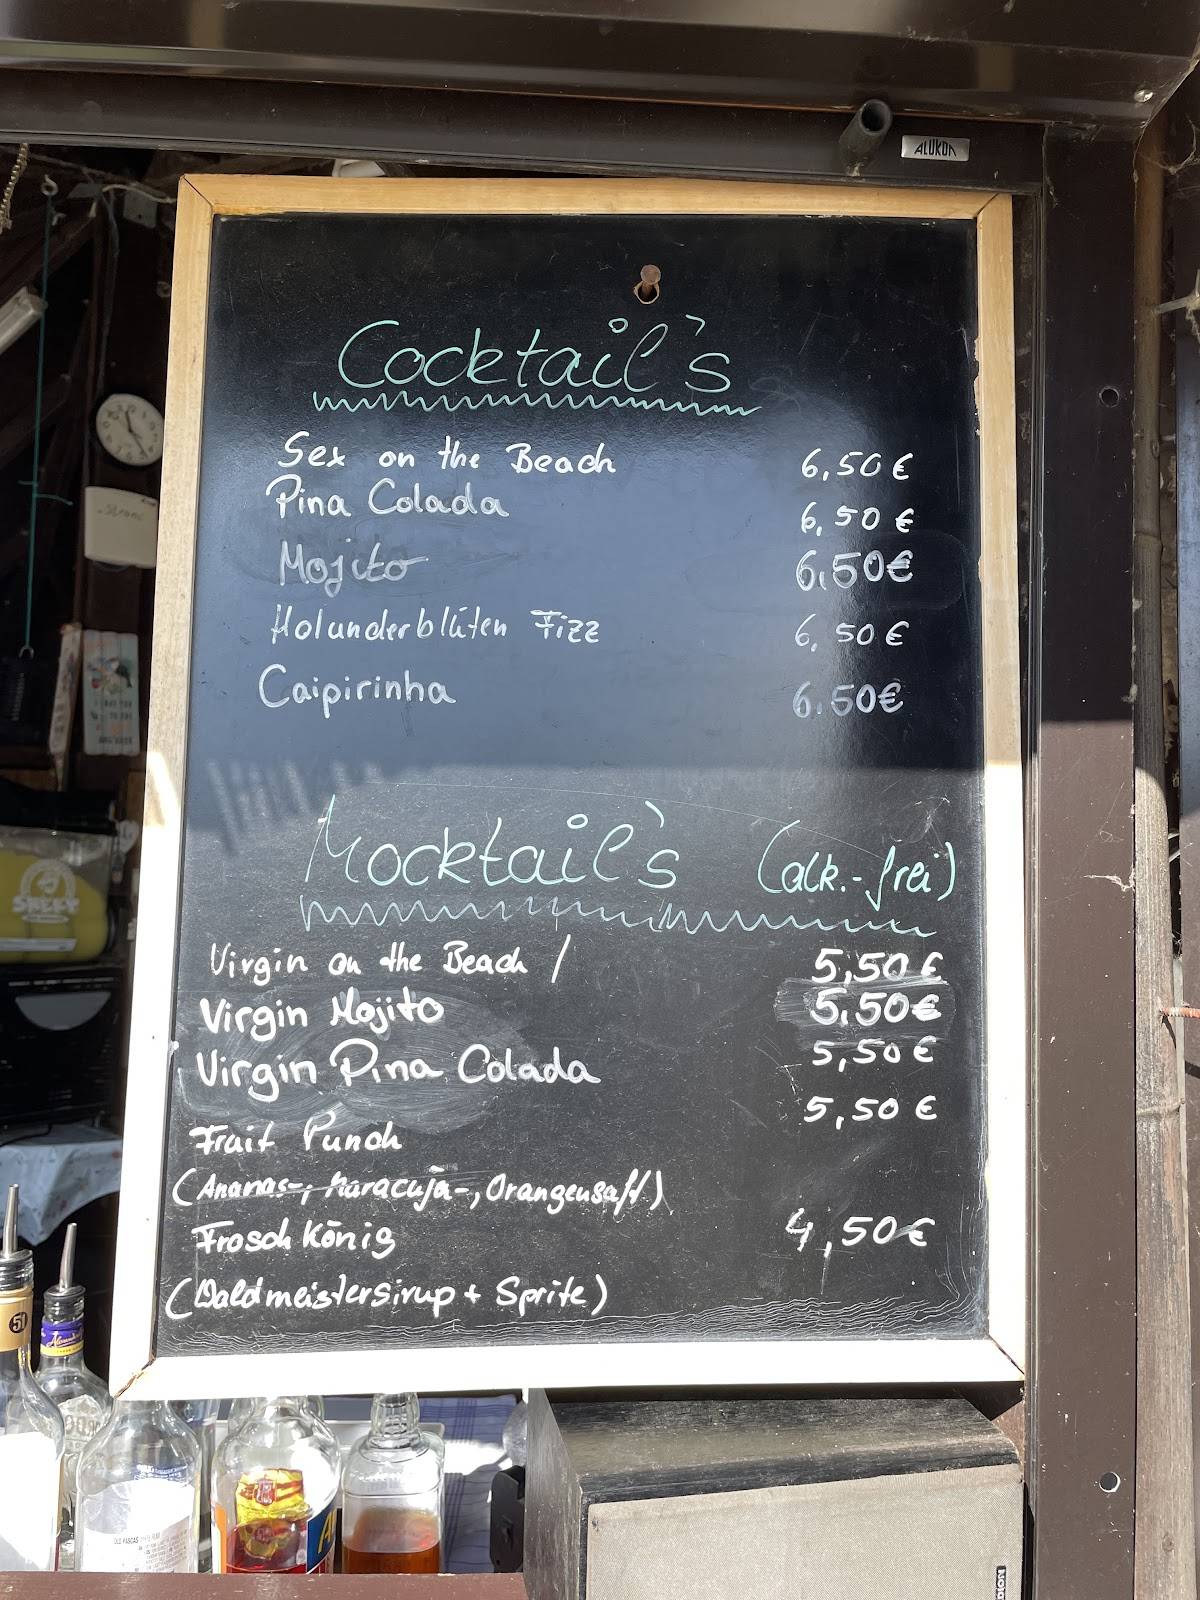 ALUKON
Cocktail's
Sex on the Beach 6,50 €
Pina Colada 6,50 €
Mojito 6,50 €
Holunderblüten Fizz 6,50 €
Caipirinha 6.50 €
Mocktail's (alk.-frei)
Virgin on the Beach / 5,50 €
Virgin Mojito 5,50 €
Virgin Pina Colada 5,50 €
Fruit Punch 5,50 €
(Ananas-, Maracuja-, Orangensaft)
Frosch König 4,50 €
(Waldmeistersirup + Sprite)
51